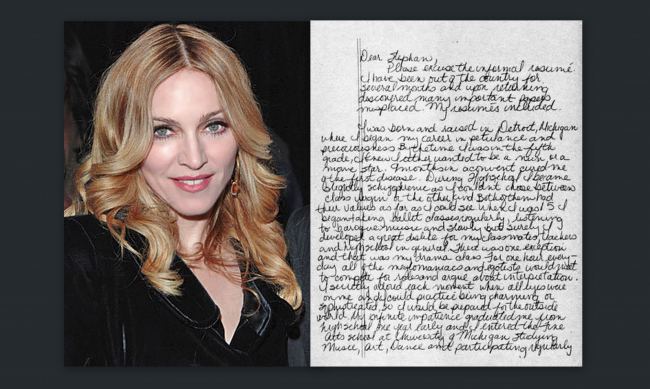 Dear Stephan,
Please excuse the informal resumé
I have been out of the country for
several months and upon returning
discovered many important papers
misplaced. My resumes included.
I was born and raised in Detroit, Michigan
where I began my career in petulance and
preciousness By the time I was in the fifth
grade, I knew I either wanted to be a nun or a
movie star. 9 months in a convent cured me
of the first disease. During high school I became
slightly schizophrenic as I couldn't choose between
class virgin or the other kind Both of them had
their values as far as I could see. When I was 15 I
began taking ballet classes regularly, listening
to baroque music and slowly but surely I
developed a great dislike for my classmates, teachers
and high school in general. There was one exception
and that was my drama class For one hour every-
day all the megalomaniacs and egotists would meet
to compete for roles and argue about interpretation.
I secretly adored each moment when all eyes were
on me and I could practice being charming or
sophisticated, so I would be prepared for the outside
world. My infinite impatience graduated me from
high school one year early and I entered the fine
Arts school at University of Michigan studying
Music, Art, Dance and participating regularly